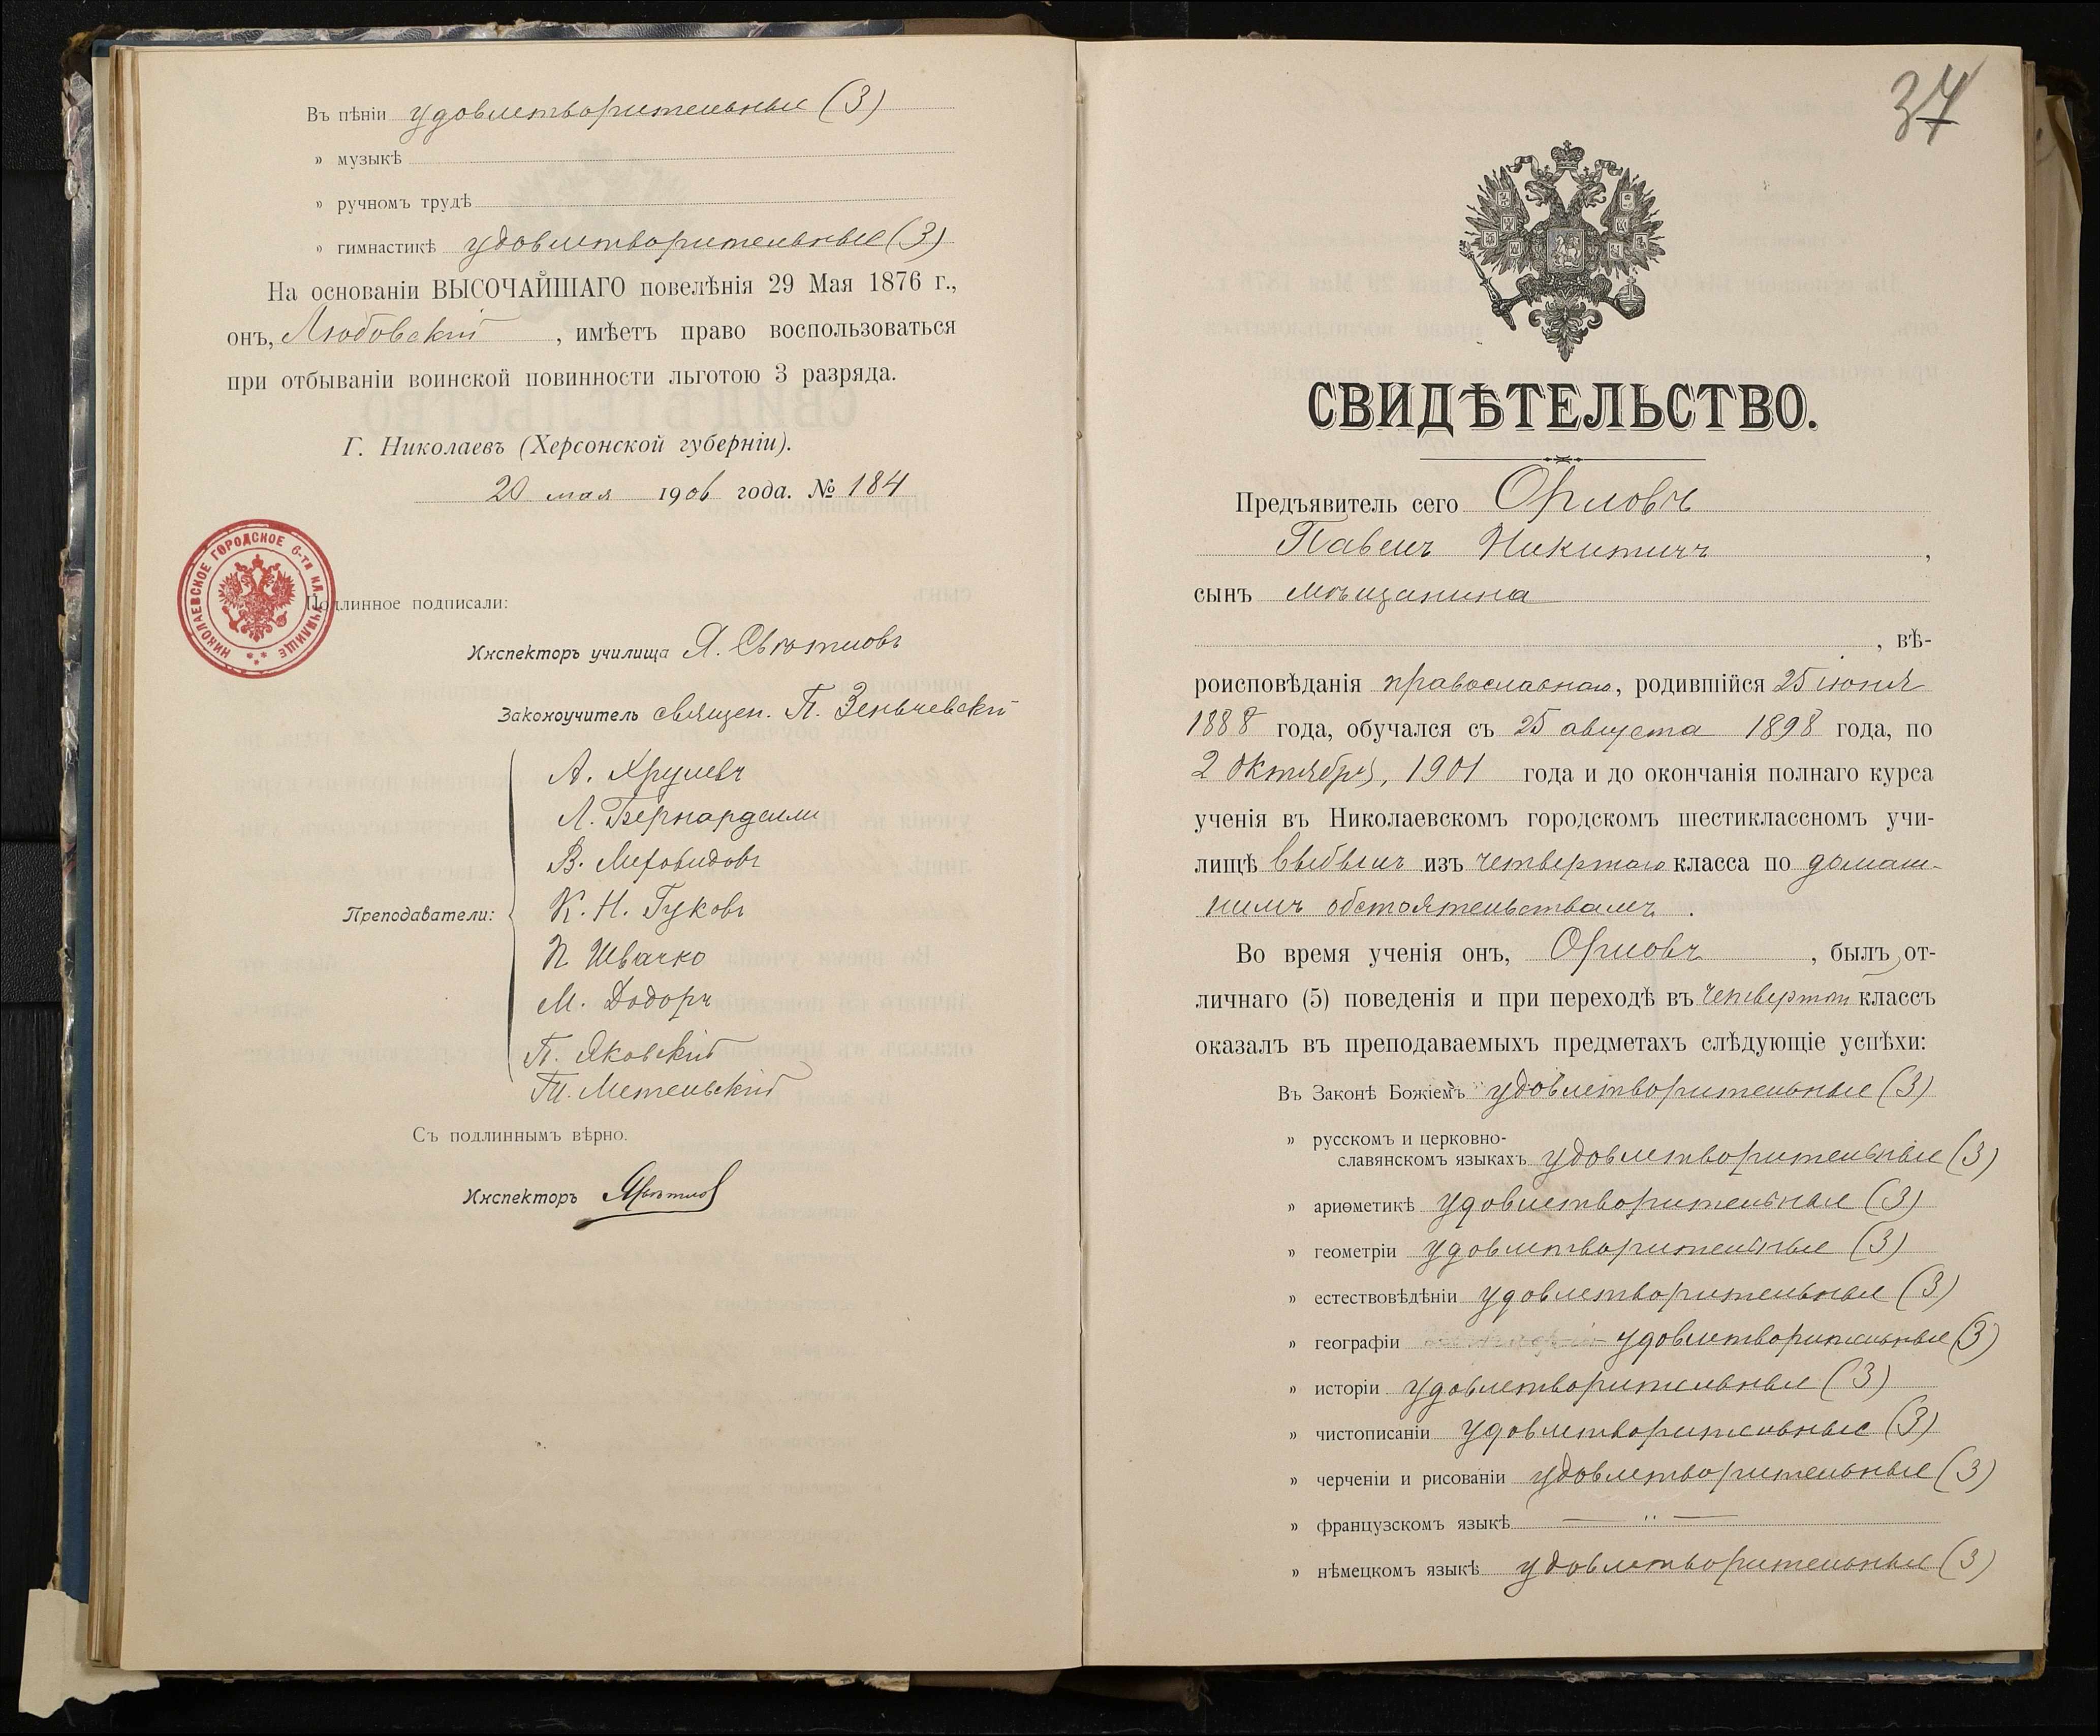 Въ пѣніи удовлетворительные (3)
» музыкѣ
» ручномъ трудѣ
» гимнастикѣ удовлетворительные (3)
На основаніи ВЫСОЧАЙШАГО повелѣнія 29 Мая 1876 г.,
онъ, Любовскій, имѣетъ право воспользоваться
при отбываніи воинской повинности льготою 3 разряда.
Г. Николаевъ (Херсонской губерніи).
20 мая 1906 года. № 184
НИКОЛАЕВСКОЕ ГОРОДСКОЕ 6-ти КЛ. УЧИЛИЩЕ
Подлинное подписали:
Инспекторъ училища Я. Свѣтловъ
Законоучитель священ. П. Зенькевскій
А. Хрулевъ
Л. Бернардели
В. Меховидовъ
Преподаватели: К. Н. Гуковъ
П. Швачко
М. Додоръ
П. Яковскій
Пл. Метельскій
Съ подлиннымъ вѣрно.
Инспекторъ ЯСвѣтловъ
37
СВИДѢТЕЛЬСТВО.
Предъявитель сего Орловъ
Павелъ Никитичъ,
сынъ мѣщанина
, вѣ-
роисповѣданія православнаго, родившійся 25 іюня
1888 года, обучался съ 25 августа 1898 года, по
2 октября, 1901 года и до окончанія полнаго курса
ученія въ Николаевскомъ городскомъ шестиклассномъ учи-
лищѣ выбылъ изъ четвертаго класса по домаш-
нимъ обстоятельствамъ.
Во время ученія онъ, Орловъ, былъ от-
личнаго (5) поведенія и при переходѣ въ четвертый классъ
оказалъ въ преподаваемыхъ предметахъ слѣдующіе успѣхи:
Въ Законѣ Божіемъ удовлетворительные (3)
» русскомъ и церковно-
славянскомъ языкахъ удовлетворительные (3)
» ариѳметикѣ удовлетворительные (3)
» геометріи удовлетворительные (3)
» естествовѣдѣніи удовлетворительные (3)
» географіи удовлетворительные (3)
» исторіи удовлетворительные (3)
» чистописаніи удовлетворительные (3)
» черченіи и рисованіи удовлетворительные (3)
» французскомъ языкѣ — " —
» нѣмецкомъ языкѣ удовлетворительные (3)